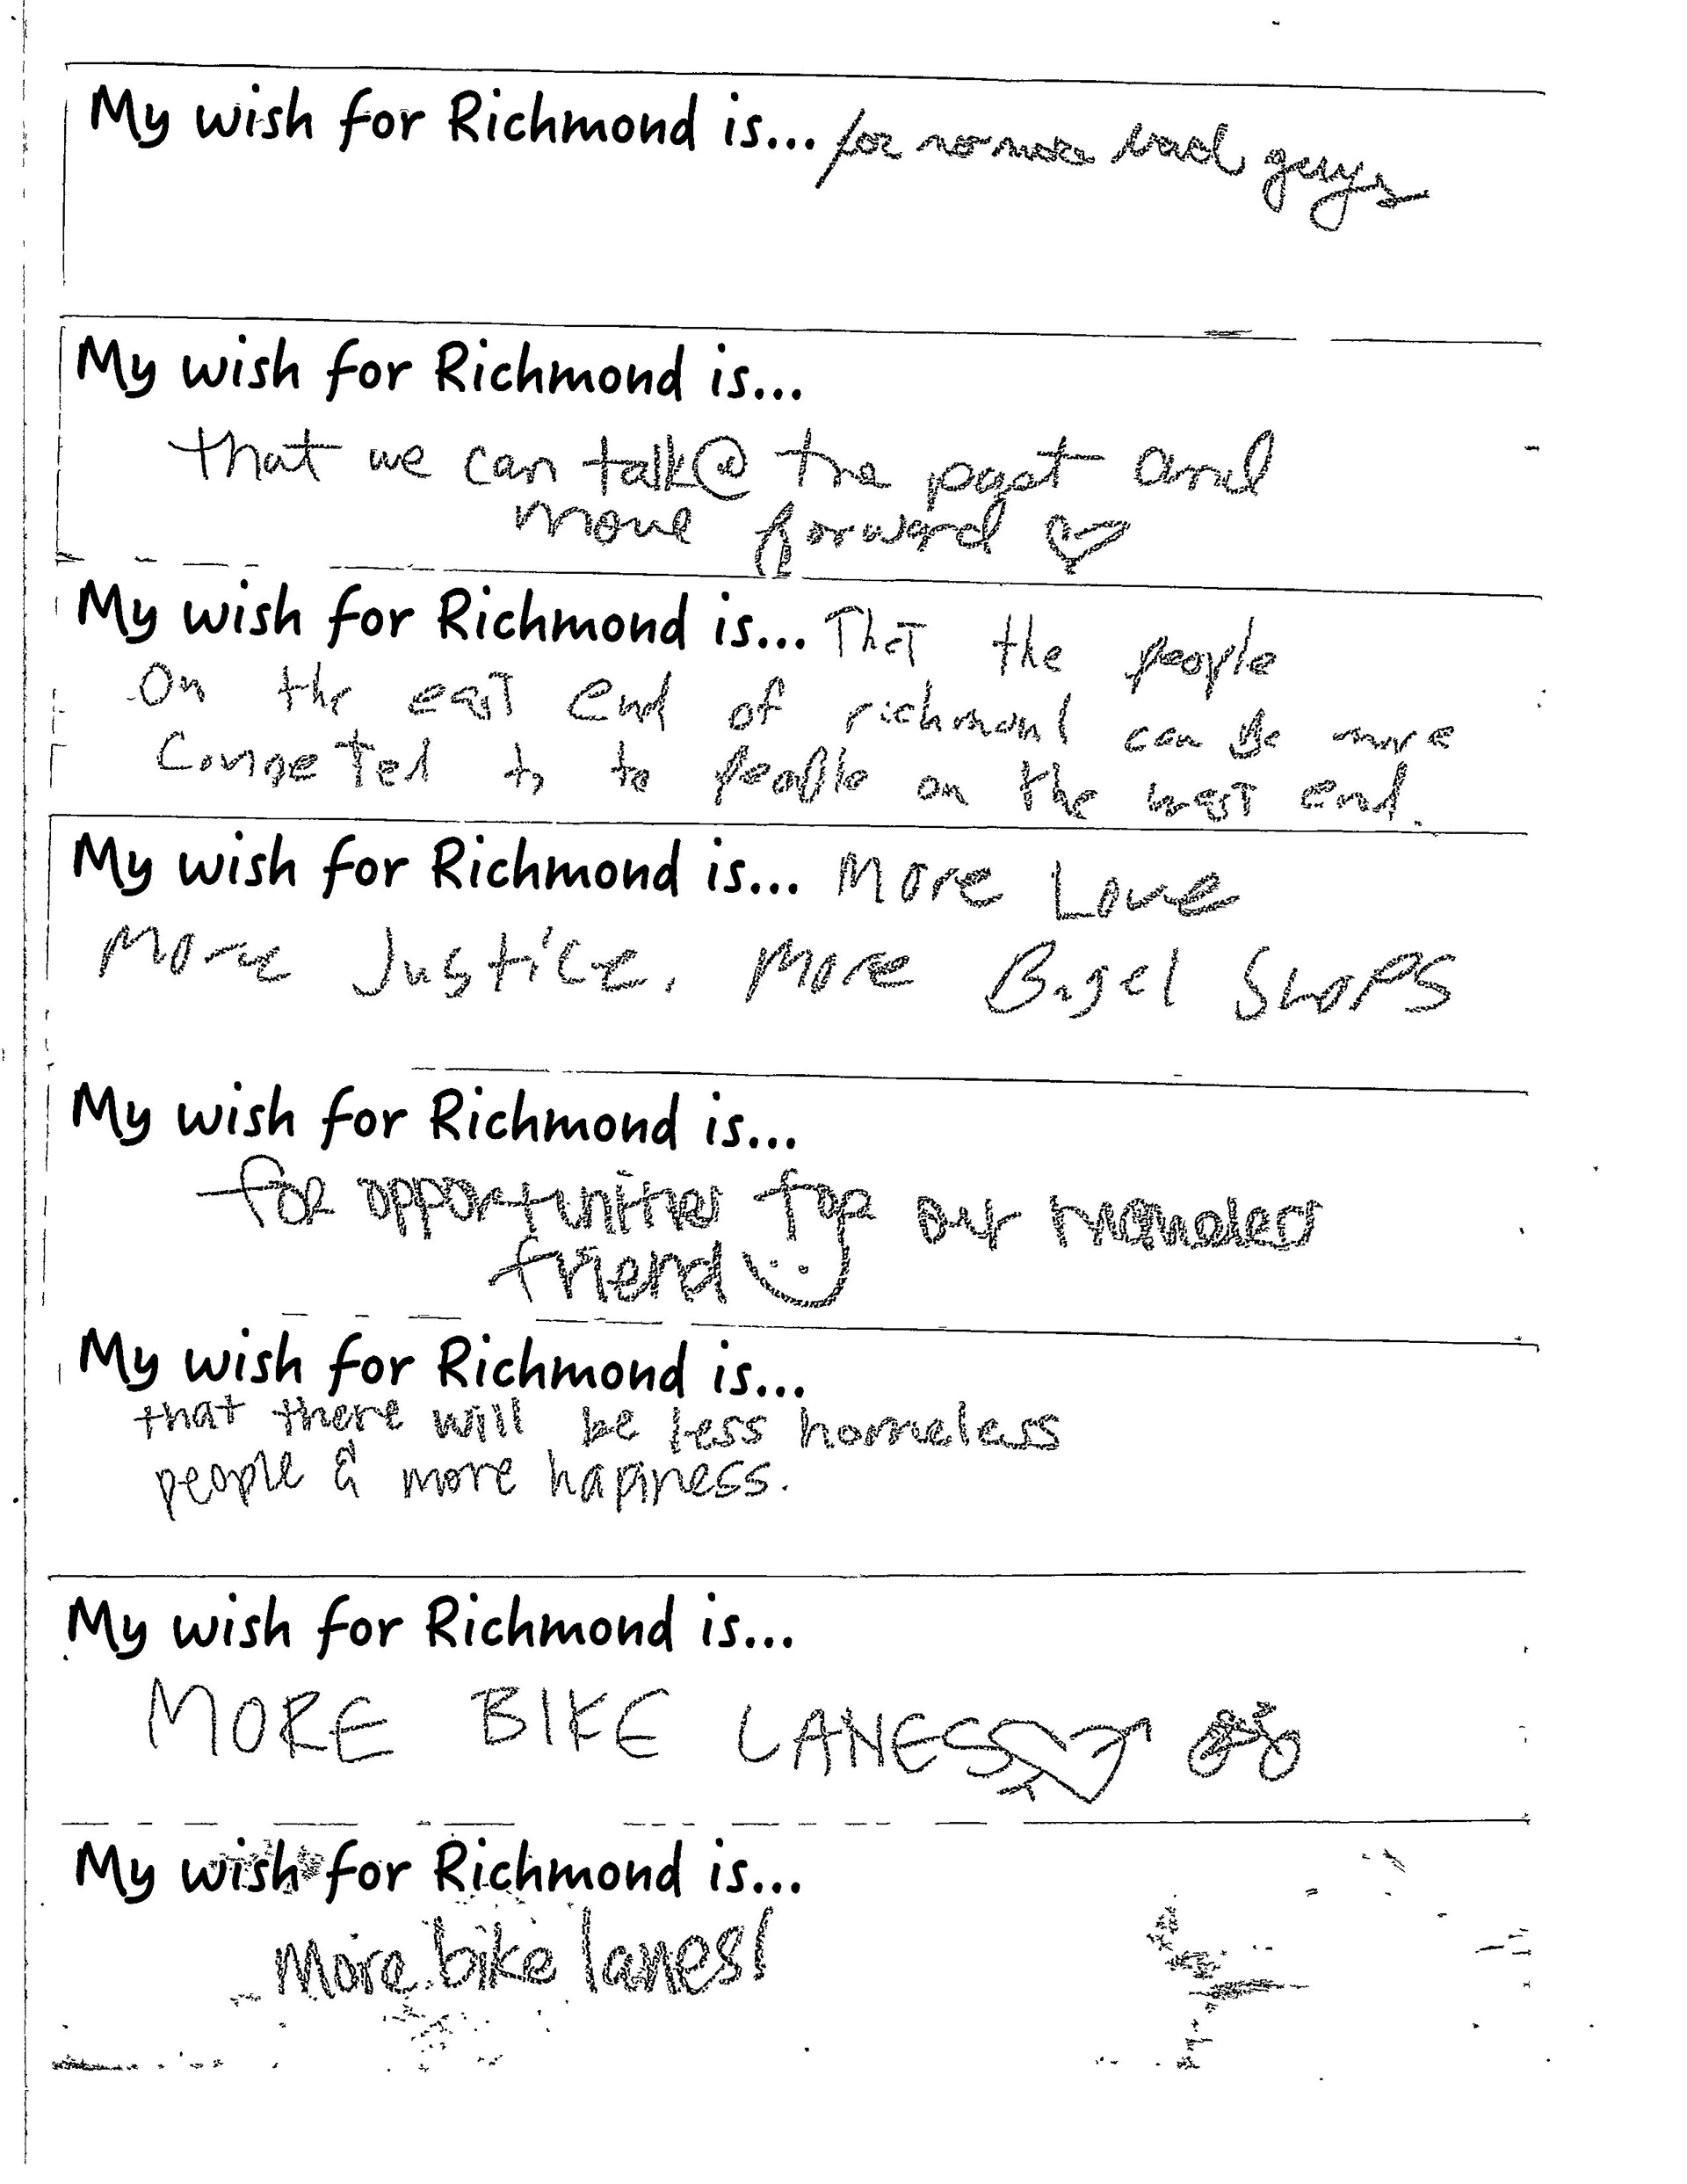 My wish for Richmond is... for no more bad guys
My wish for Richmond is...
that we can talk @ the past and
move forward
My wish for Richmond is... That the people
On the east end of richmond can be more
Conneted to to people on the west end.
My wish for Richmond is... More Love
More Justice, More Bagel Shops
My wish for Richmond is...
for opportunities for our homeless
friend
My wish for Richmond is...
that there will be less homeless
people & more happiness.
My wish for Richmond is...
MORE BIKE LANES
My wish for Richmond is...
More bike lanes!